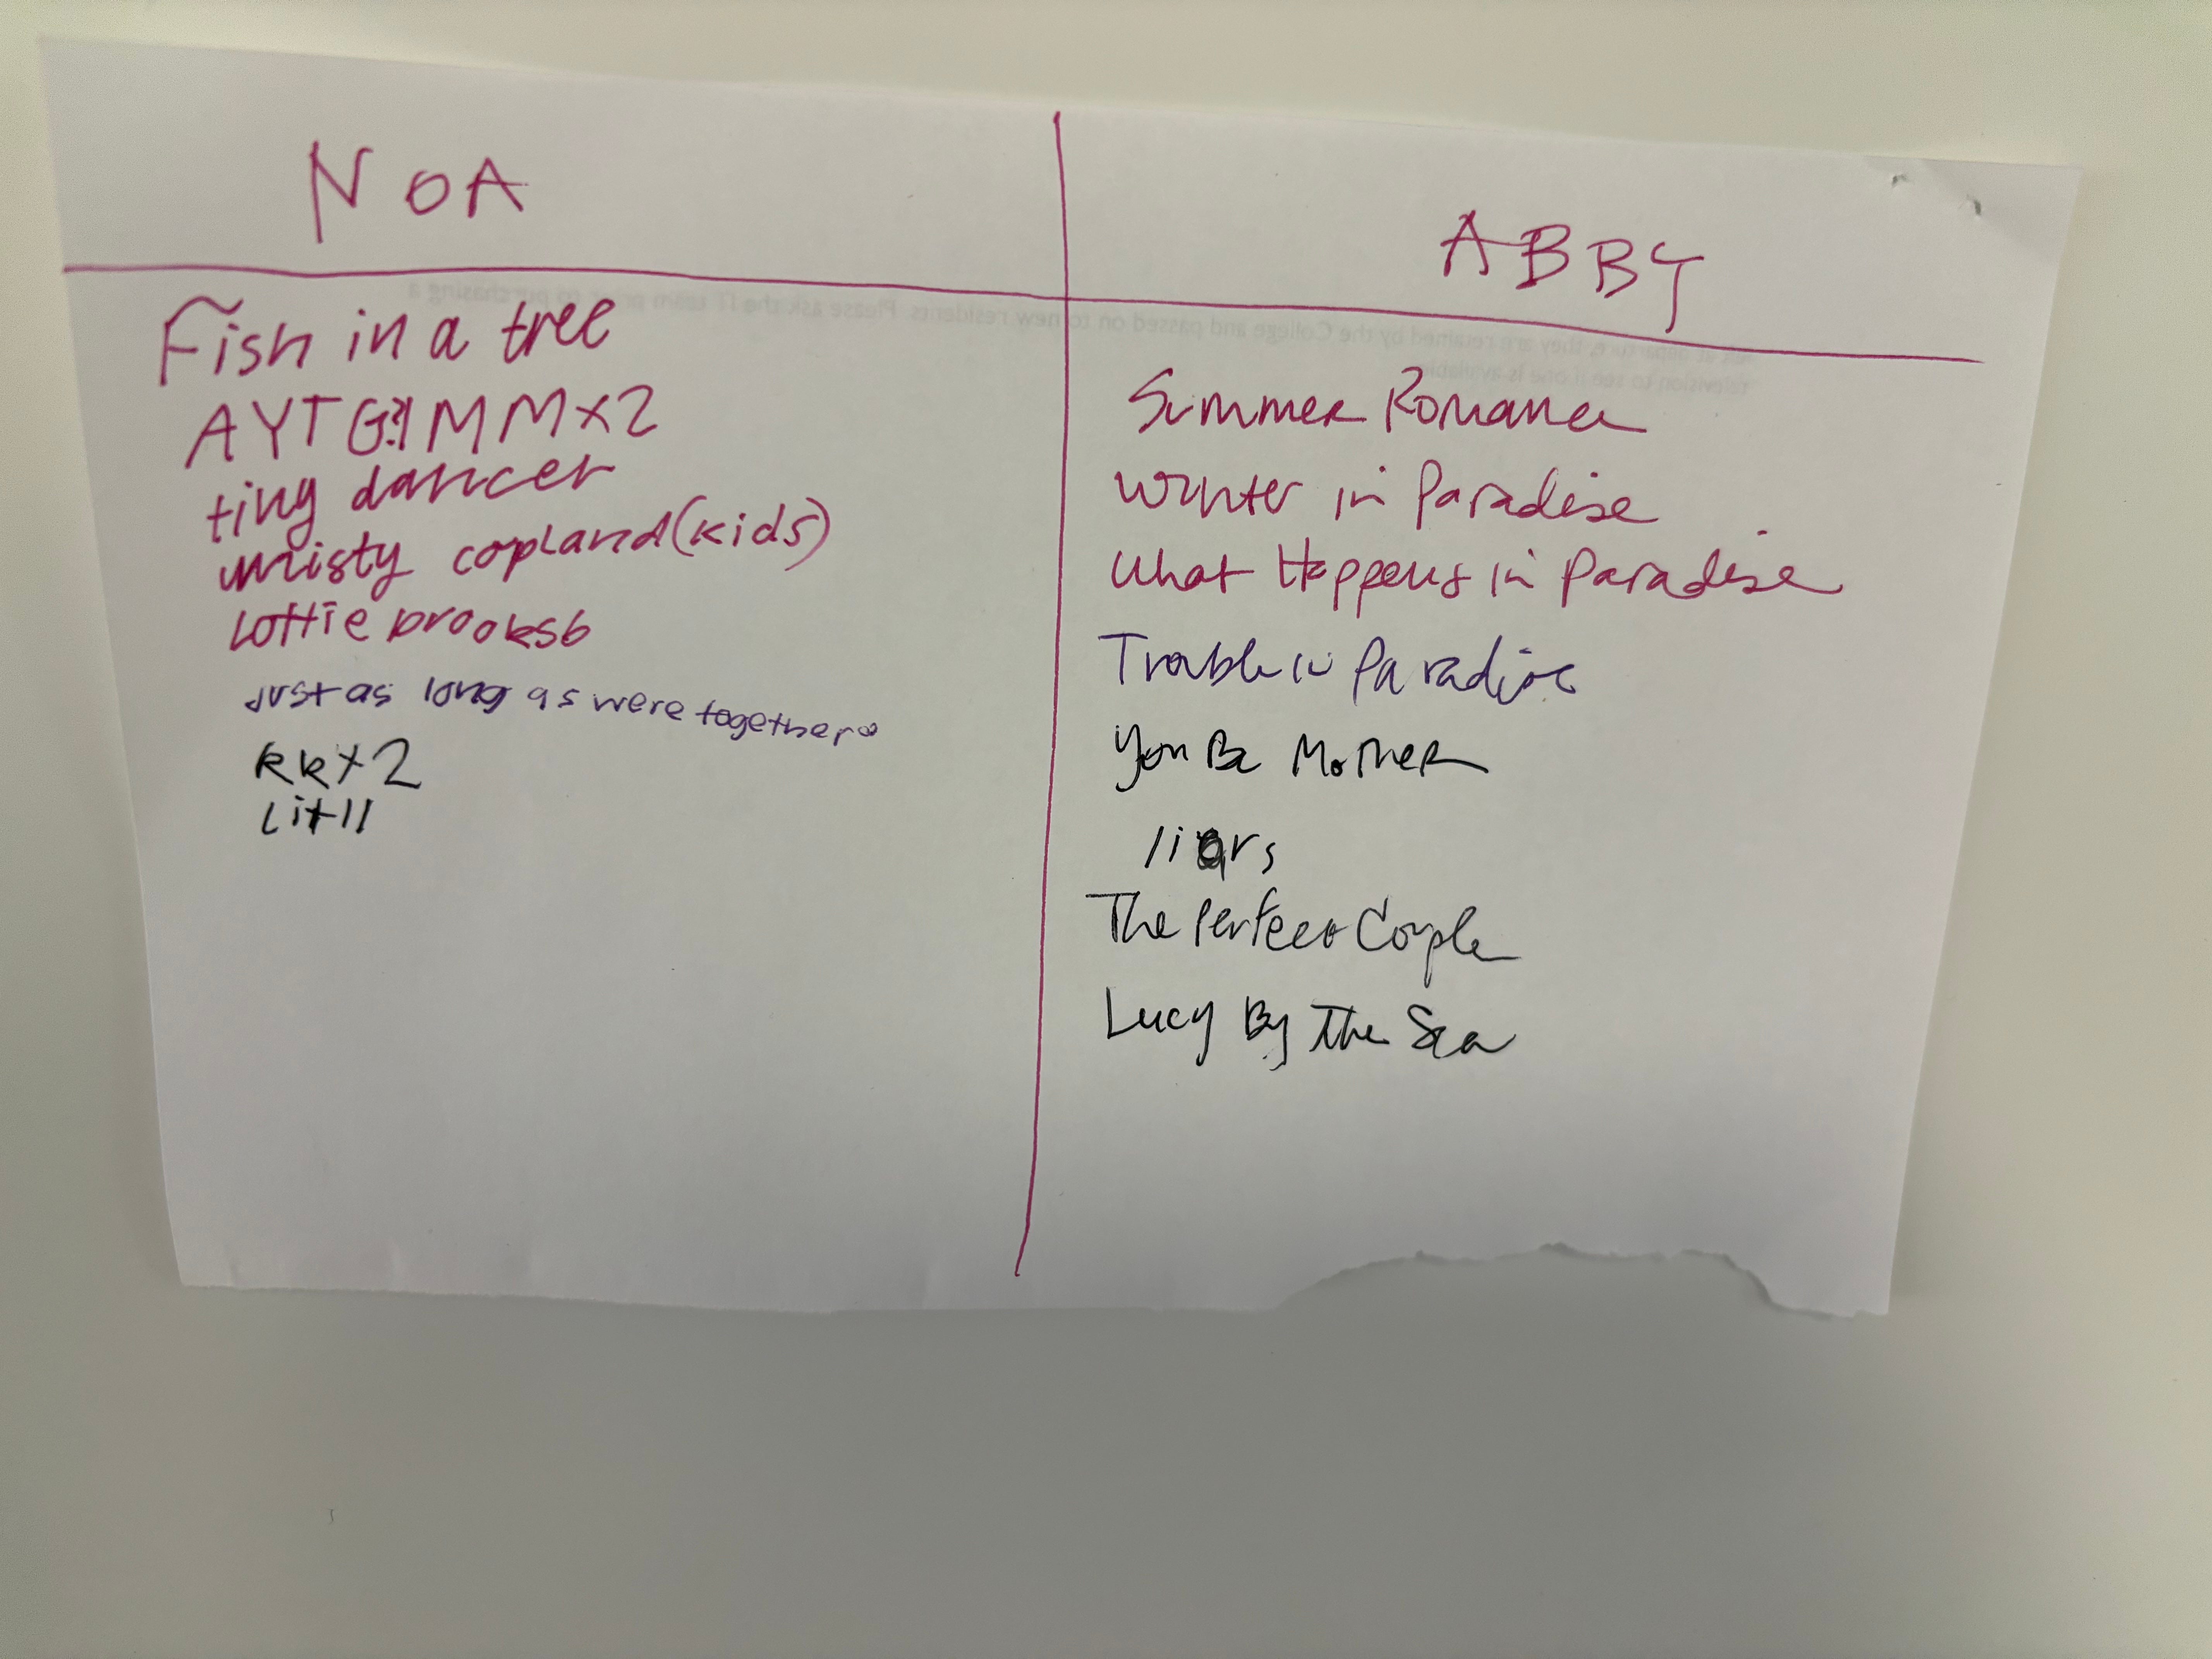 NOA
Fish in a tree
AYTG?IMMx2
tiny dancer
misty copland (kids)
Lottie brooks6
Just as long as were together
kkx2
Lit 11
ABBY
Summer Romance
Winter in Paradise
What Happens in Paradise
Trouble in Paradise
You Be Mother
liars
The Perfect Couple
Lucy By The Sea